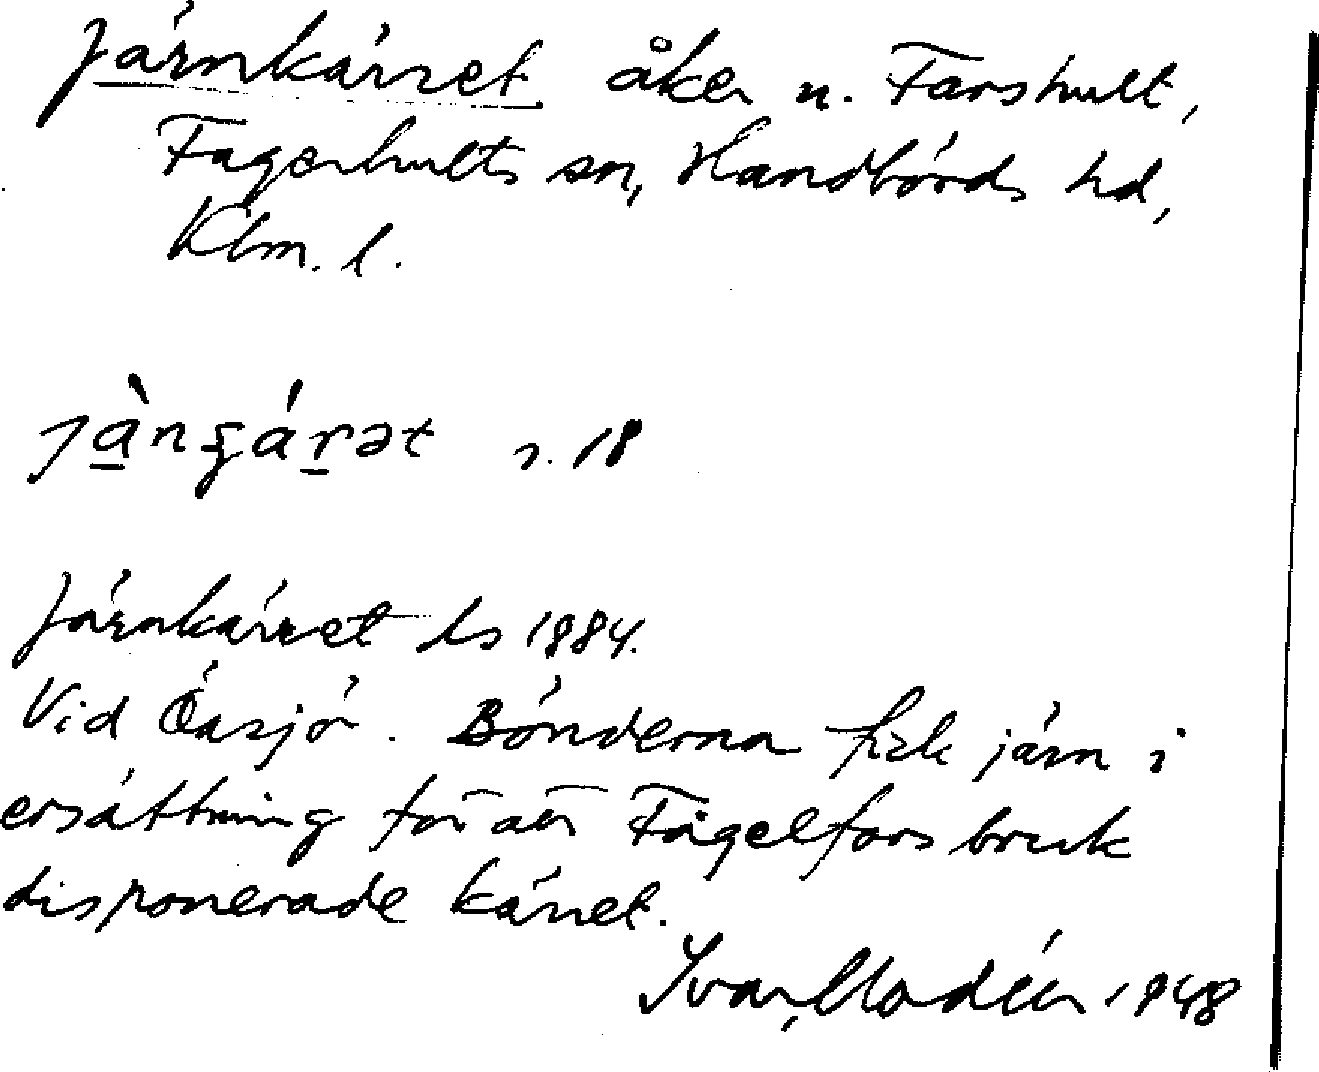 Järnkärret åker n. Farshult,
Fagerhults sn, Handbörds hd,
Klm. l.
jàngárət s. 18
Järnkärret ls 1884.
Vid Öasjö. Bönderna fick järn i
ersättning för att Fågelfors bruk
disponerade kärret.
Ivar Modéer 1948